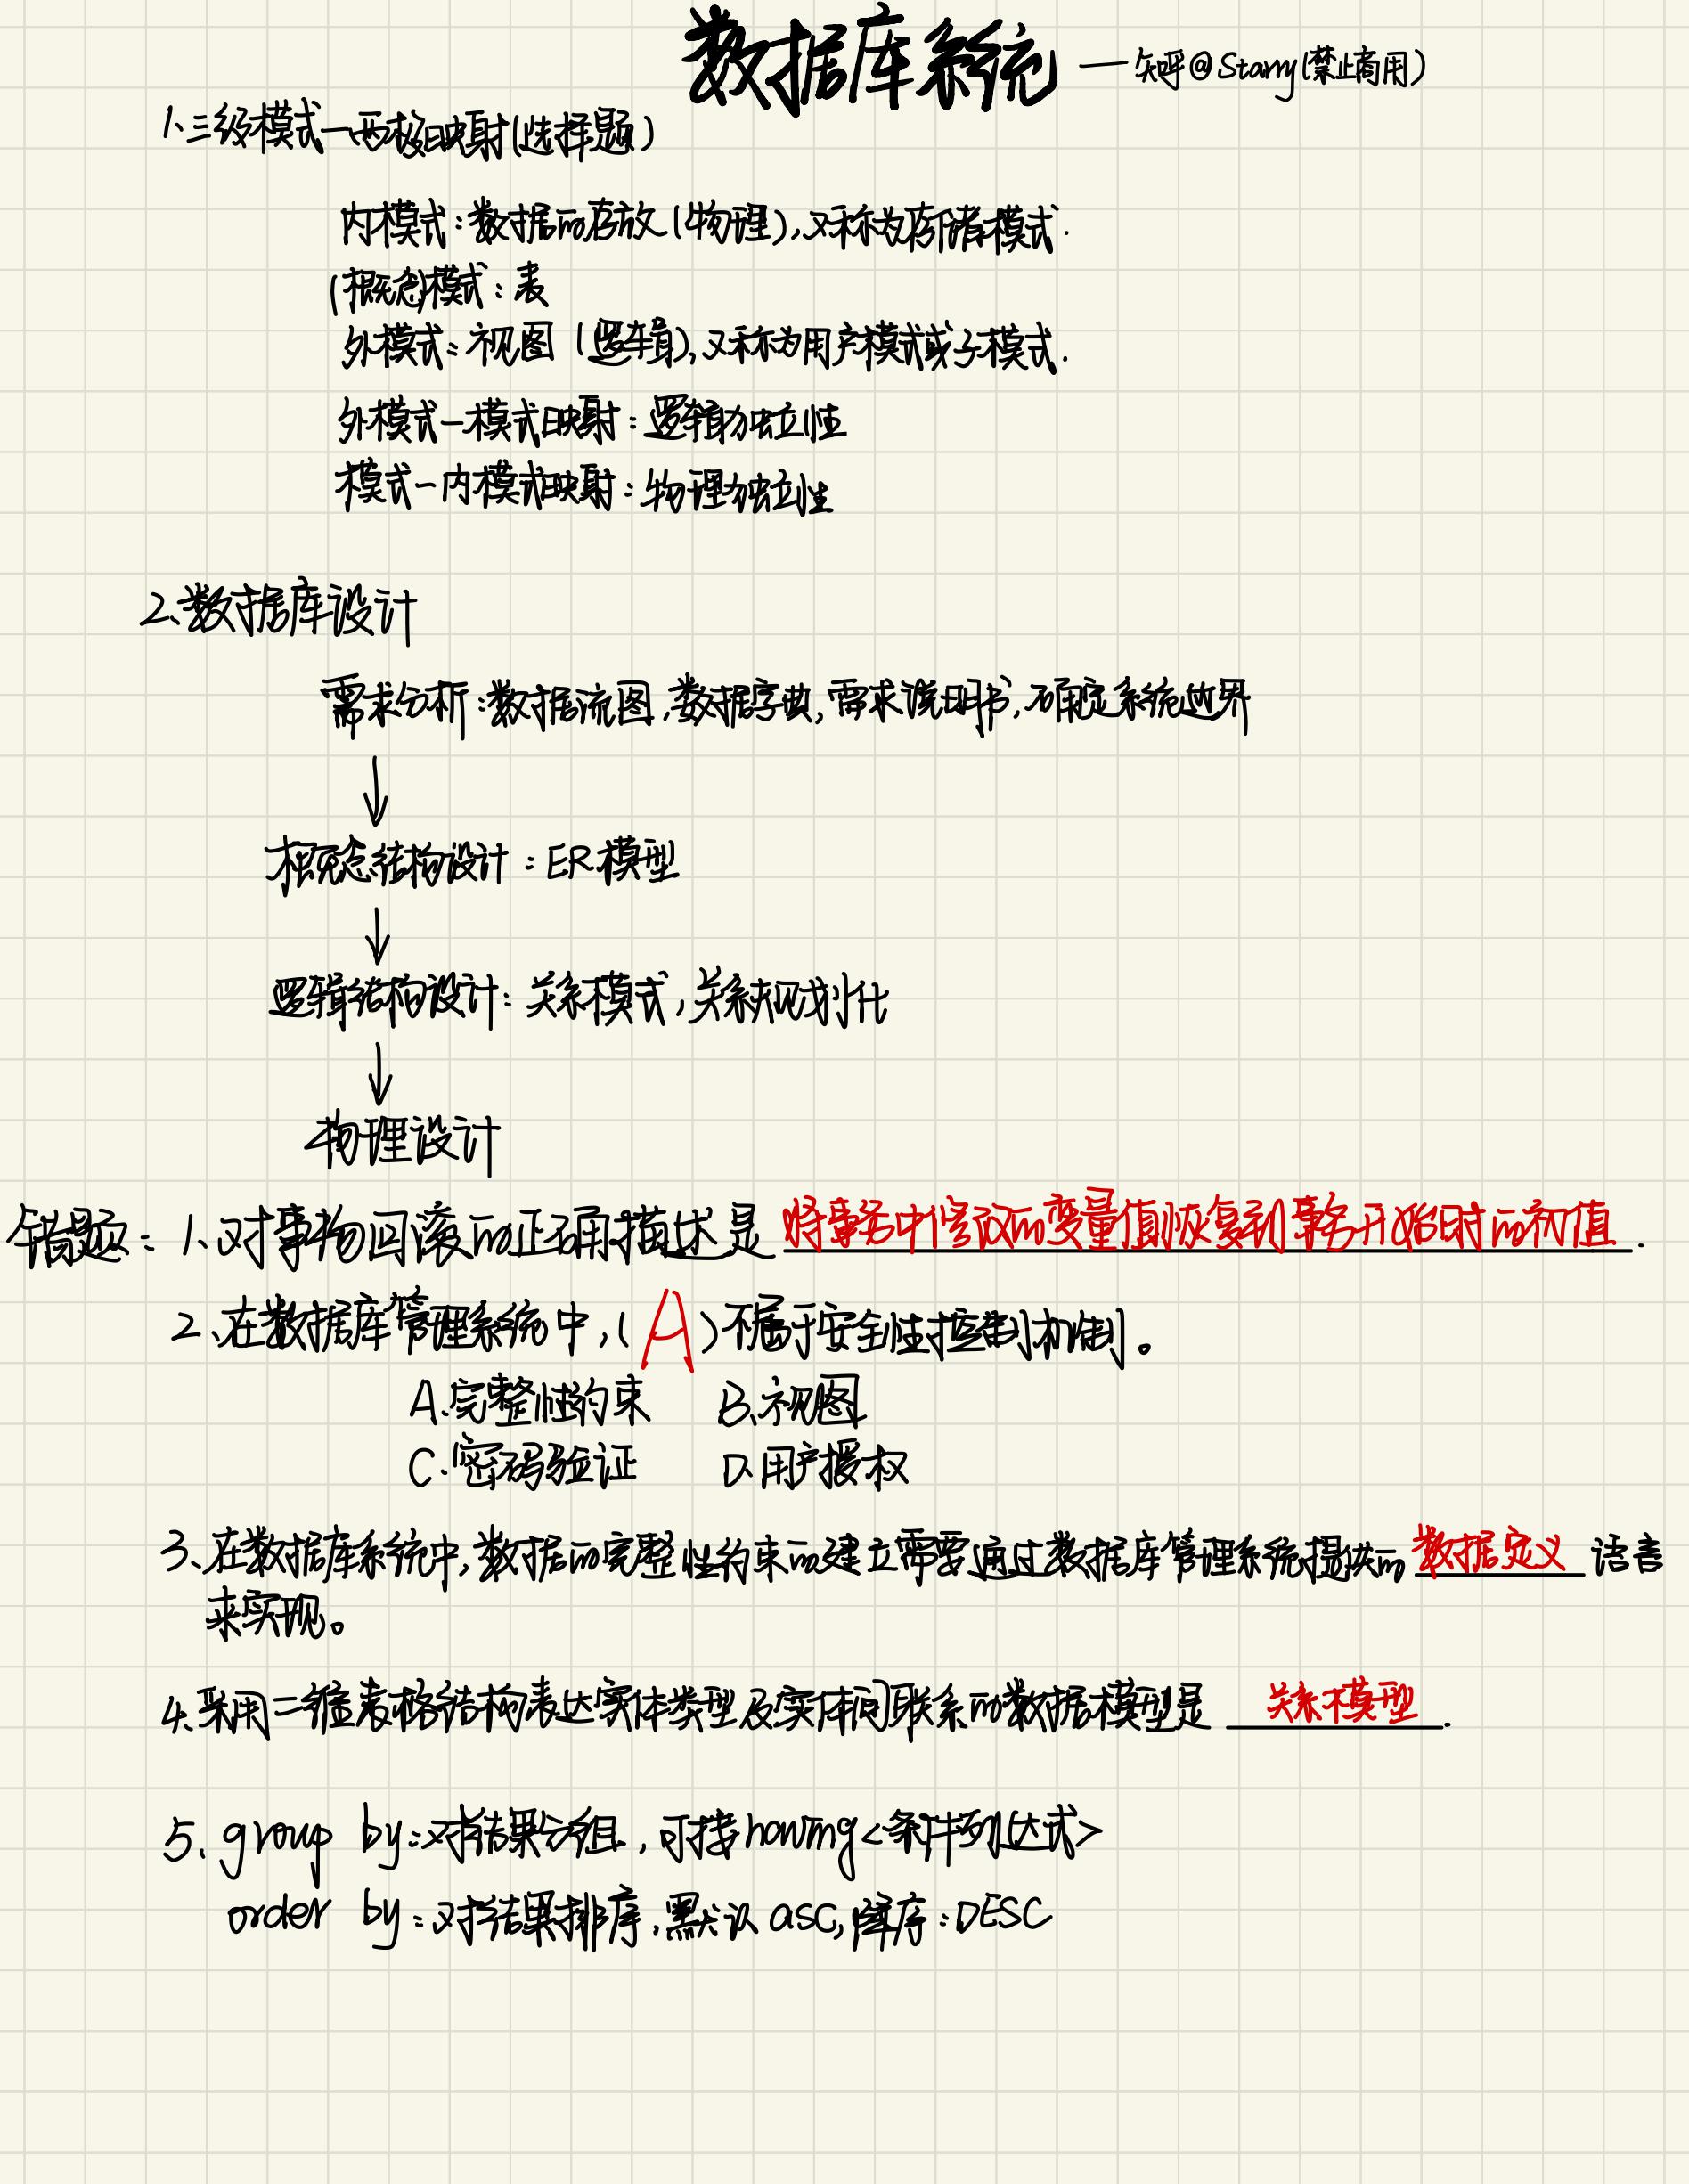 数据库系统 —知乎@Starry(禁止商用)
1、三级模式—两极映射(选择题)
内模式:数据的存放(物理),又称为存储模式.
(概念)模式:表
外模式:视图(逻辑),又称为用户模式或子模式.
外模式—模式映射:逻辑独立性
模式—内模式映射:物理独立性
2、数据库设计
需求分析:数据流图,数据字典,需求说明书,确定系统边界
↓
概念结构设计:ER模型
↓
逻辑结构设计:关系模式,关系规划化
↓
物理设计
错题:1、对事物回滚的正确描述是 将事务中修改的变量值恢复到事务开始时的初值.
2、在数据库管理系统中,(A)不属于安全性控制机制。
A.完整性约束 B、视图
C.密码验证 D.用户授权
3、在数据库系统中,数据的完整性约束的建立需要通过数据库管理系统提供的 数据定义 语言
来实现。
4.采用二维表格结构表达实体类型及实体间联系的数据模型是 关系模型.
5. group by:对结果分组,可接having<条件列达式>
order by:对结果排序,默认asc,降序:DESC